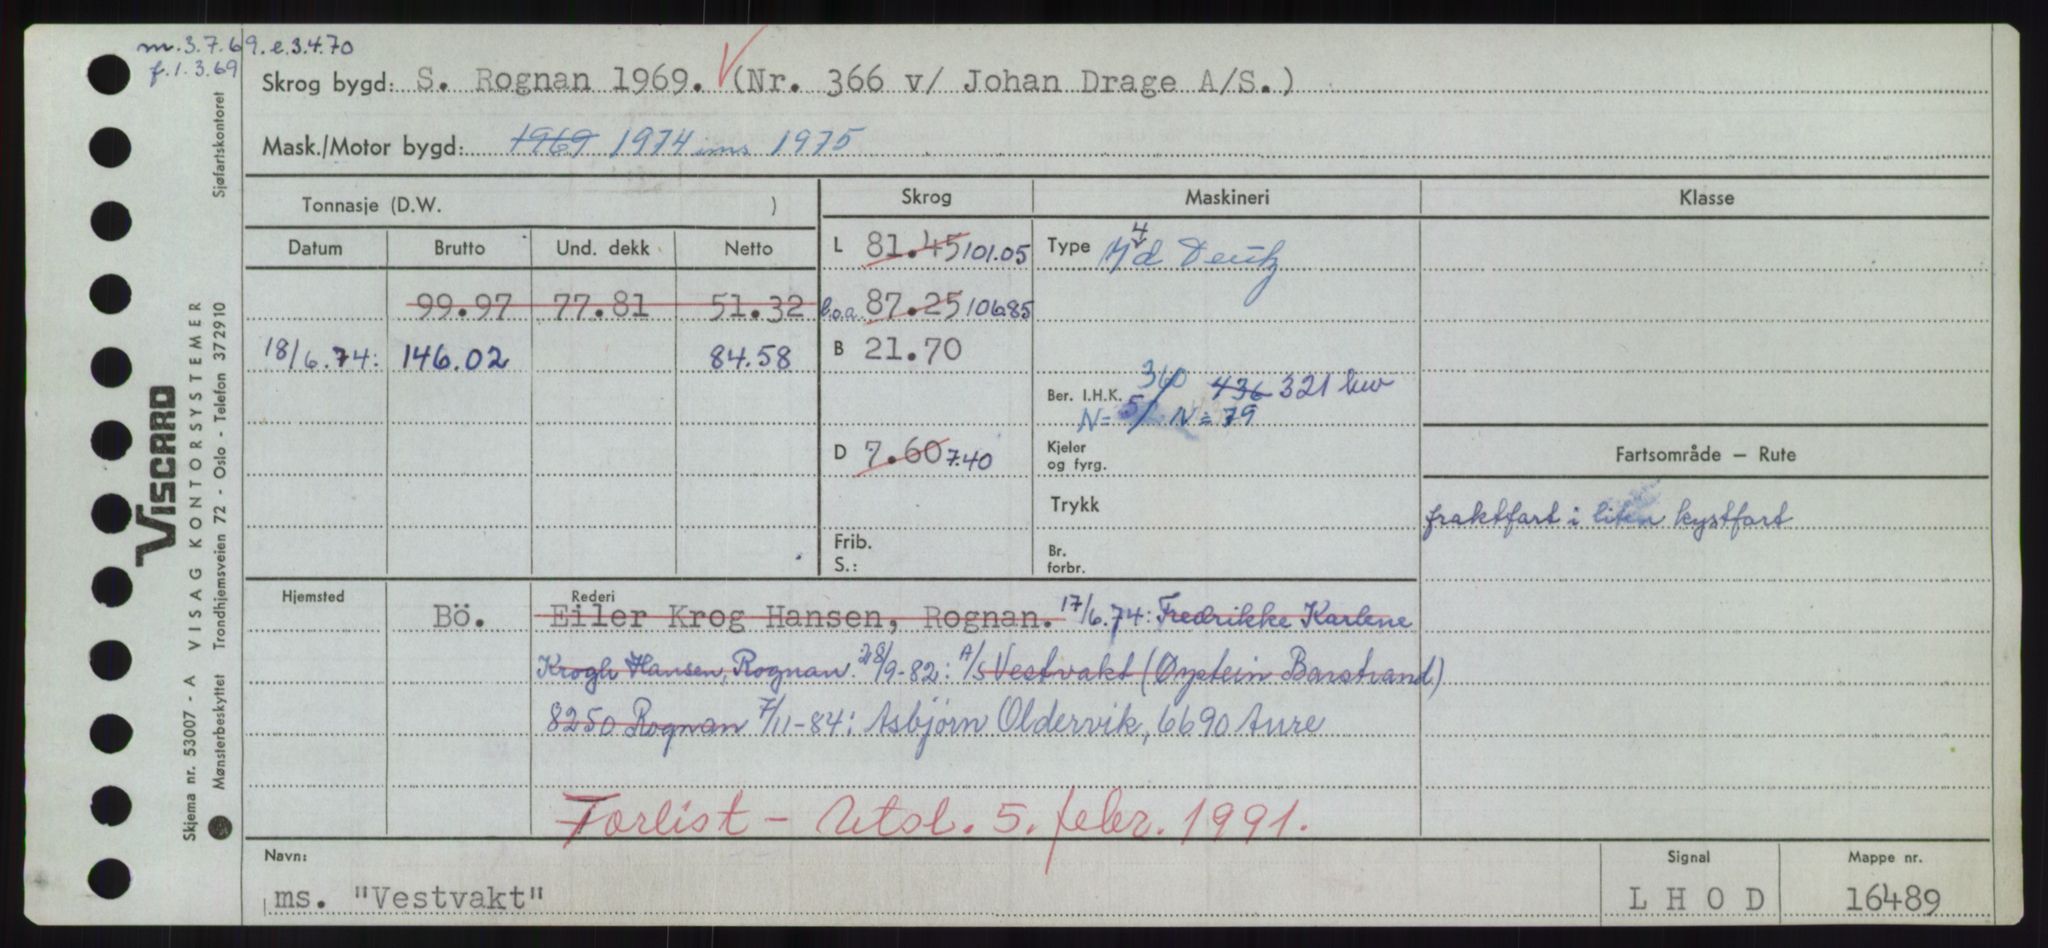 m. 3.7.69. e.3.4.70
f. 1.3.69
Skrog bygd: S. Rognan 1969. (Nr. 366 v/ Johan Drage A/S.)
Mask./Motor bygd: 1969 1974 ins 1975
Tonnasje (D.W. )
Skrog
Maskineri
Klasse
Datum Brutto Und. dekk Netto
L 81.45 101.05
Type 4 d Deutz
99.97 77.81 51.32
l.o.a. 87.25 106.85
18/6.74: 146.02 84.58
B 21.70
Ber. I.H.K. 360 436 321 kw
N= 51 N= 79
D 7.60 7.40
Kjeler
og fyrg.
Fartsområde – Rute
Trykk
fraktfart i liten kystfart
Frib.
S.:
Br.
forbr.
Hjemsted
Rederi
Bö. Eiler Krog Hansen, Rognan. 17/6.74: Fredrikke Karlene
Krogh Hansen, Rognan. 28/9-82: A/S Vestvakt (Øystein Barstrand)
8250 Rognan 7/11-84: Asbjörn Oldervik, 6690 Aure
Forlist – Utsl. 5. febr. 1991.
Navn:
ms. "Vestvakt"
Signal
L H O D
Mappe nr.
16489
Sjøfartskontoret
VISCARD
VISAG KONTORSYSTEMER
Trondhjemsveien 72 - Oslo - Telefon 372910
Skjema nr. 53007 - A
Mønsterbeskyttet